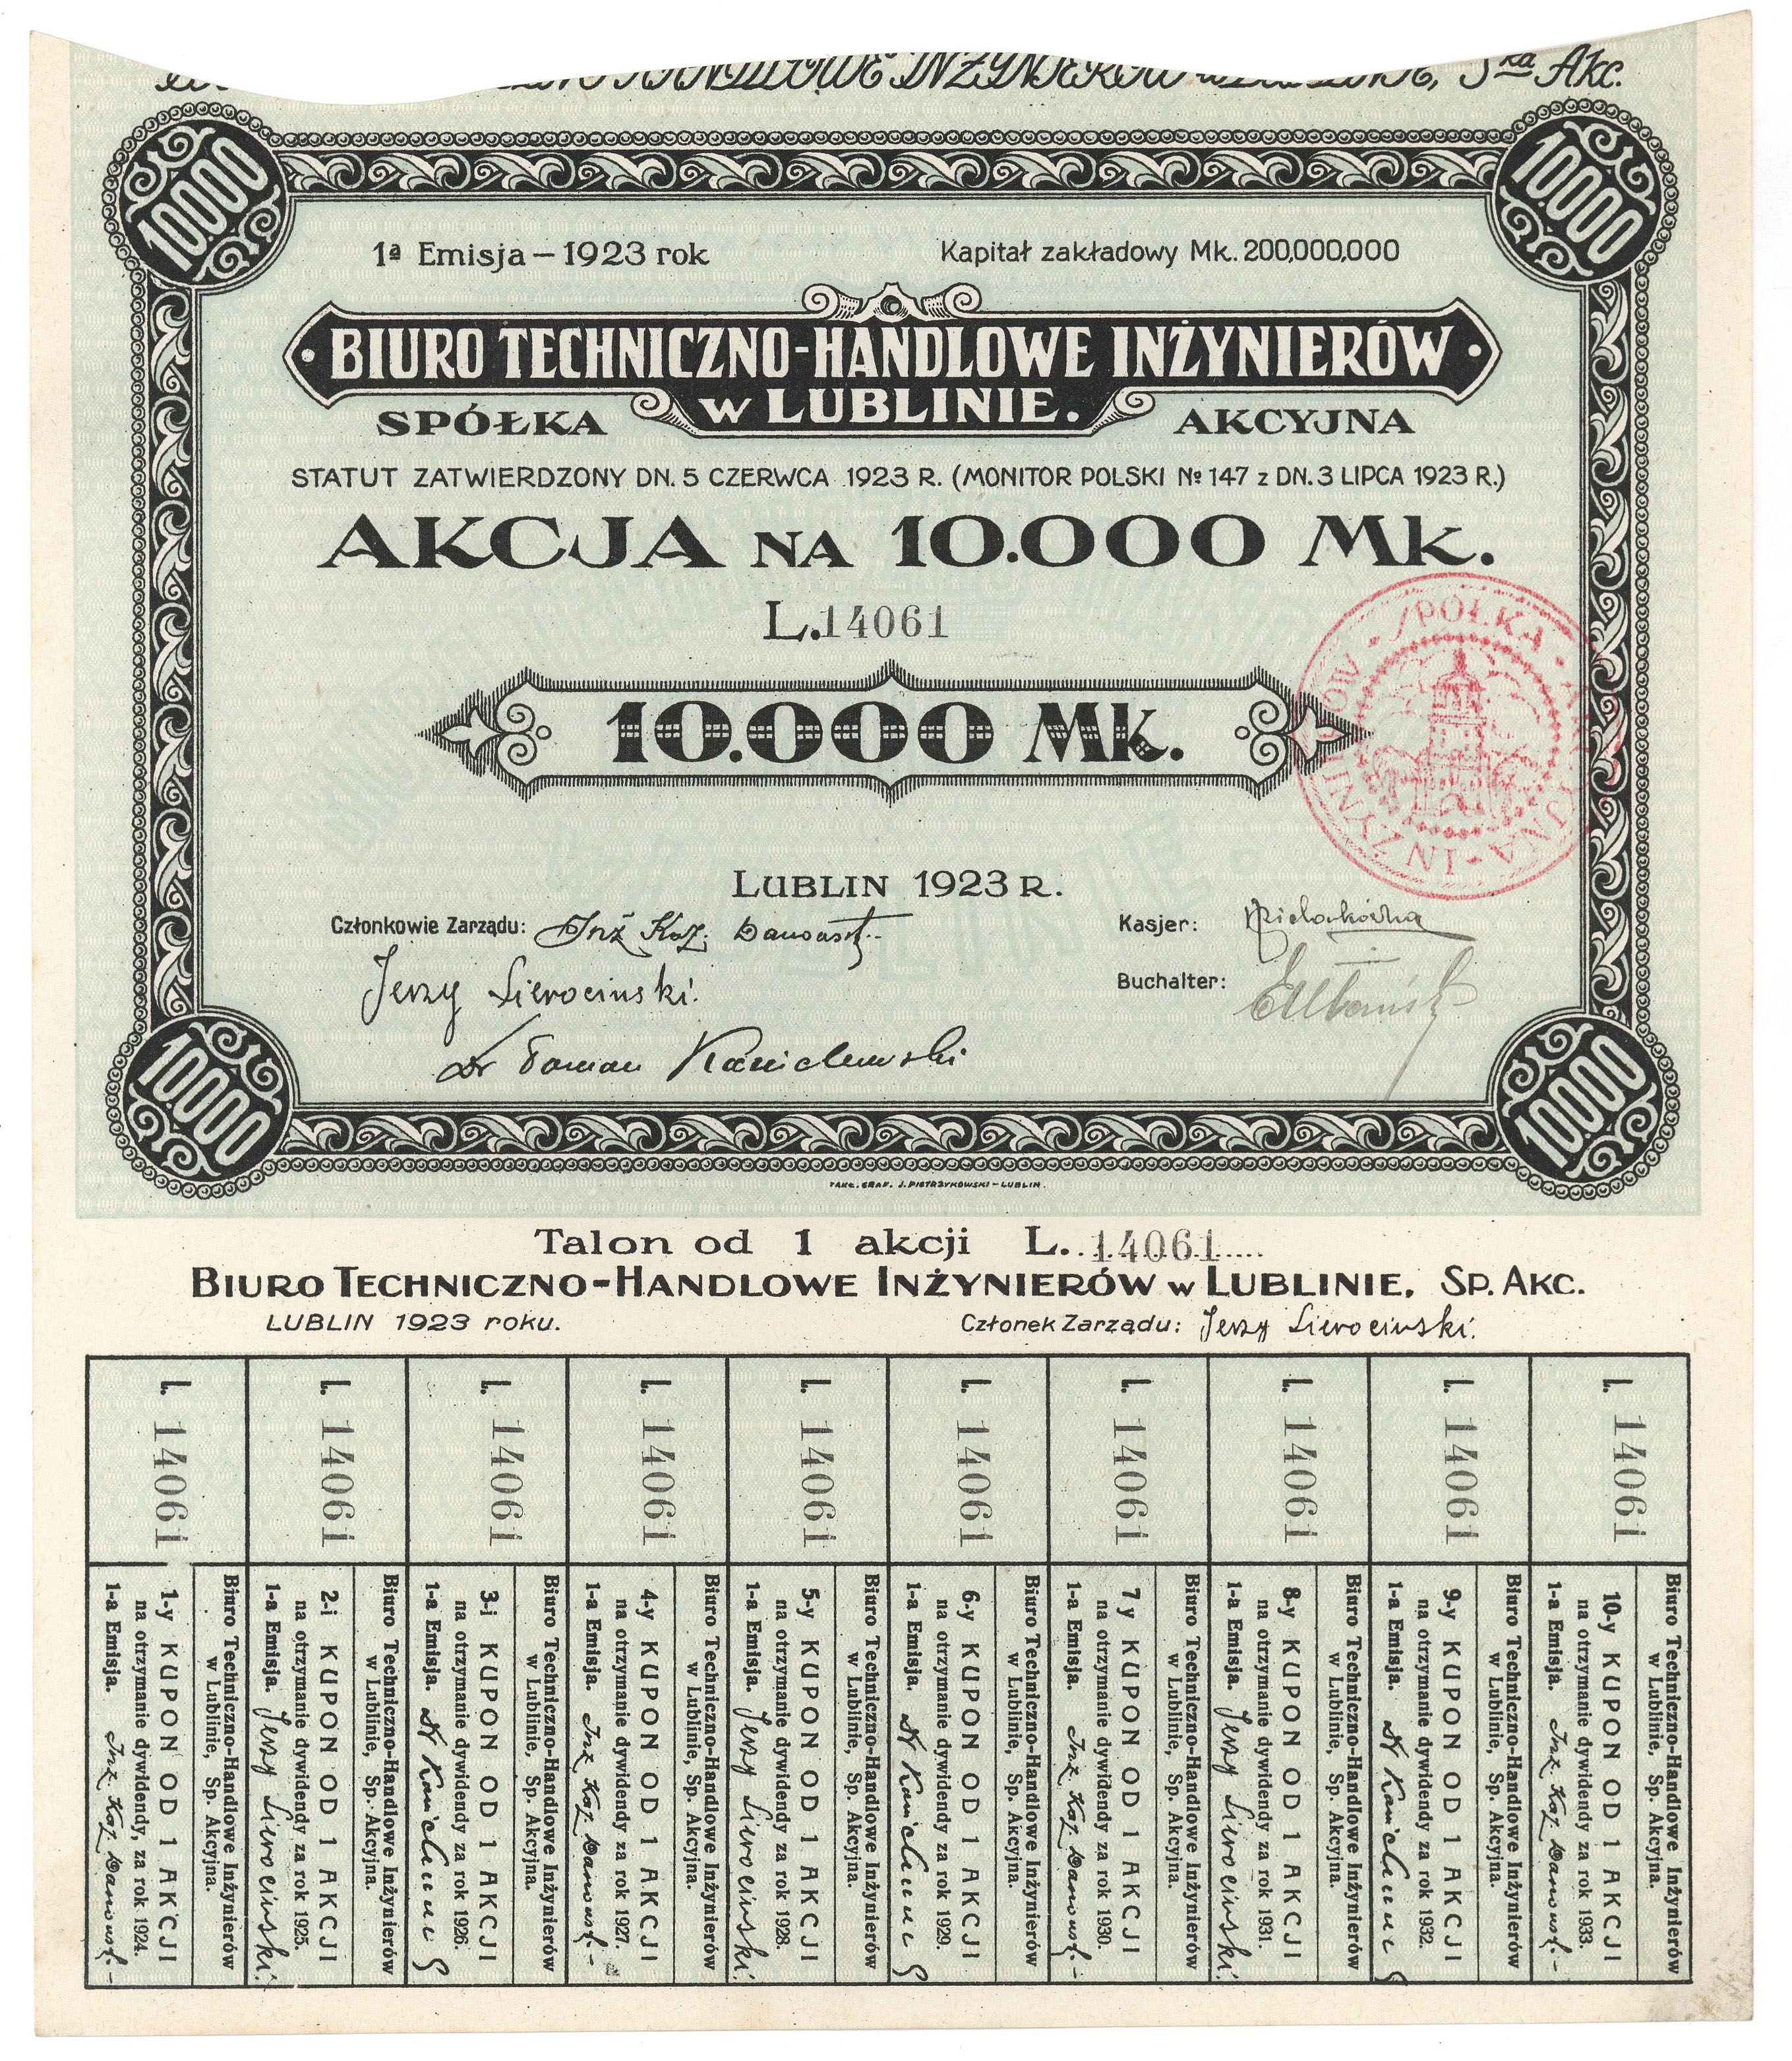 HANDLOWE INŻYNIERÓW w LUBLINIE, Ska Akc.
10.000
10.000
1a Emisja – 1923 rok
Kapitał zakładowy Mk. 200,000,000
BIURO TECHNICZNO-HANDLOWE INŻYNIERÓW
W LUBLINIE.
SPÓŁKA AKCYJNA
STATUT ZATWIERDZONY DN. 5 CZERWCA 1923 R. (MONITOR POLSKI № 147 z DN. 3 LIPCA 1923 R.)
AKCJA NA 10.000 MK.
L. 14061
10.000 MK.
SPÓŁKA AKCYJNA INŻYNIERÓW
LUBLIN 1923 R.
Członkowie Zarządu: Inż Kaz.
Kasjer:
Jerzy Sierocinski.
Buchalter:
Dr Roman
10.000
10.000
ZAKŁ. GRAF. J. PIETRZYKOWSKI – LUBLIN.
Talon od 1 akcji L. 14061
BIURO TECHNICZNO-HANDLOWE INŻYNIERÓW w LUBLINIE, SP. AKC.
LUBLIN 1923 roku.
Członek Zarządu: Jerzy Sierocinski.
L. 14061
L. 14061
L. 14061
L. 14061
L. 14061
L. 14061
L. 14061
L. 14061
L. 14061
L. 14061
Biuro Techniczno-Handlowe Inżynierów
w Lublinie, Sp. Akcyjna.
1-y KUPON OD 1 AKCJI
na otrzymanie dywidendy, za rok 1924.
1-a Emisja. Inż. Kaz.
Biuro Techniczno-Handlowe Inżynierów
w Lublinie, Sp. Akcyjna.
2-i KUPON OD 1 AKCJI
na otrzymanie dywidendy za rok 1925.
1-a Emisja. Jerzy Sierocinski.
Biuro Techniczno-Handlowe Inżynierów
w Lublinie, Sp. Akcyjna.
3-i KUPON OD 1 AKCJI
na otrzymanie dywidendy za rok 1926.
1-a Emisja. Dr
Biuro Techniczno-Handlowe Inżynierów
w Lublinie, Sp. Akcyjna.
4-y KUPON OD 1 AKCJI
na otrzymanie dywidendy za rok 1927.
1-a Emisja. Inż. Kaz.
Biuro Techniczno-Handlowe Inżynierów
w Lublinie, Sp. Akcyjna.
5-y KUPON OD 1 AKCJI
na otrzymanie dywidendy za rok 1928.
1-a Emisja. Jerzy Sierocinski.
Biuro Techniczno-Handlowe Inżynierów
w Lublinie, Sp. Akcyjna.
6-y KUPON OD 1 AKCJI
na otrzymanie dywidendy za rok 1929.
1-a Emisja. Dr
Biuro Techniczno-Handlowe Inżynierów
w Lublinie, Sp. Akcyjna.
7 y KUPON OD 1 AKCJI
na otrzymanie dywidendy za rok 1930.
1-a Emisja. Inż. Kaz.
Biuro Techniczno-Handlowe Inżynierów
w Lublinie, Sp. Akcyjna.
8-y KUPON OD 1 AKCJI
na otrzymanie dywidendy za rok 1931.
1-a Emisja. Jerzy Sierocinski.
Biuro Techniczno-Handlowe Inżynierów
w Lublinie, Sp. Akcyjna.
9-y KUPON OD 1 AKCJI
na otrzymanie dywidendy za rok 1932.
1-a Emisja. Dr
Biuro Techniczno-Handlowe Inżynierów
w Lublinie, Sp. Akcyjna.
10-y KUPON OD 1 AKCJI
na otrzymanie dywidendy za rok 1933.
1-a Emisja. Inż. Kaz.